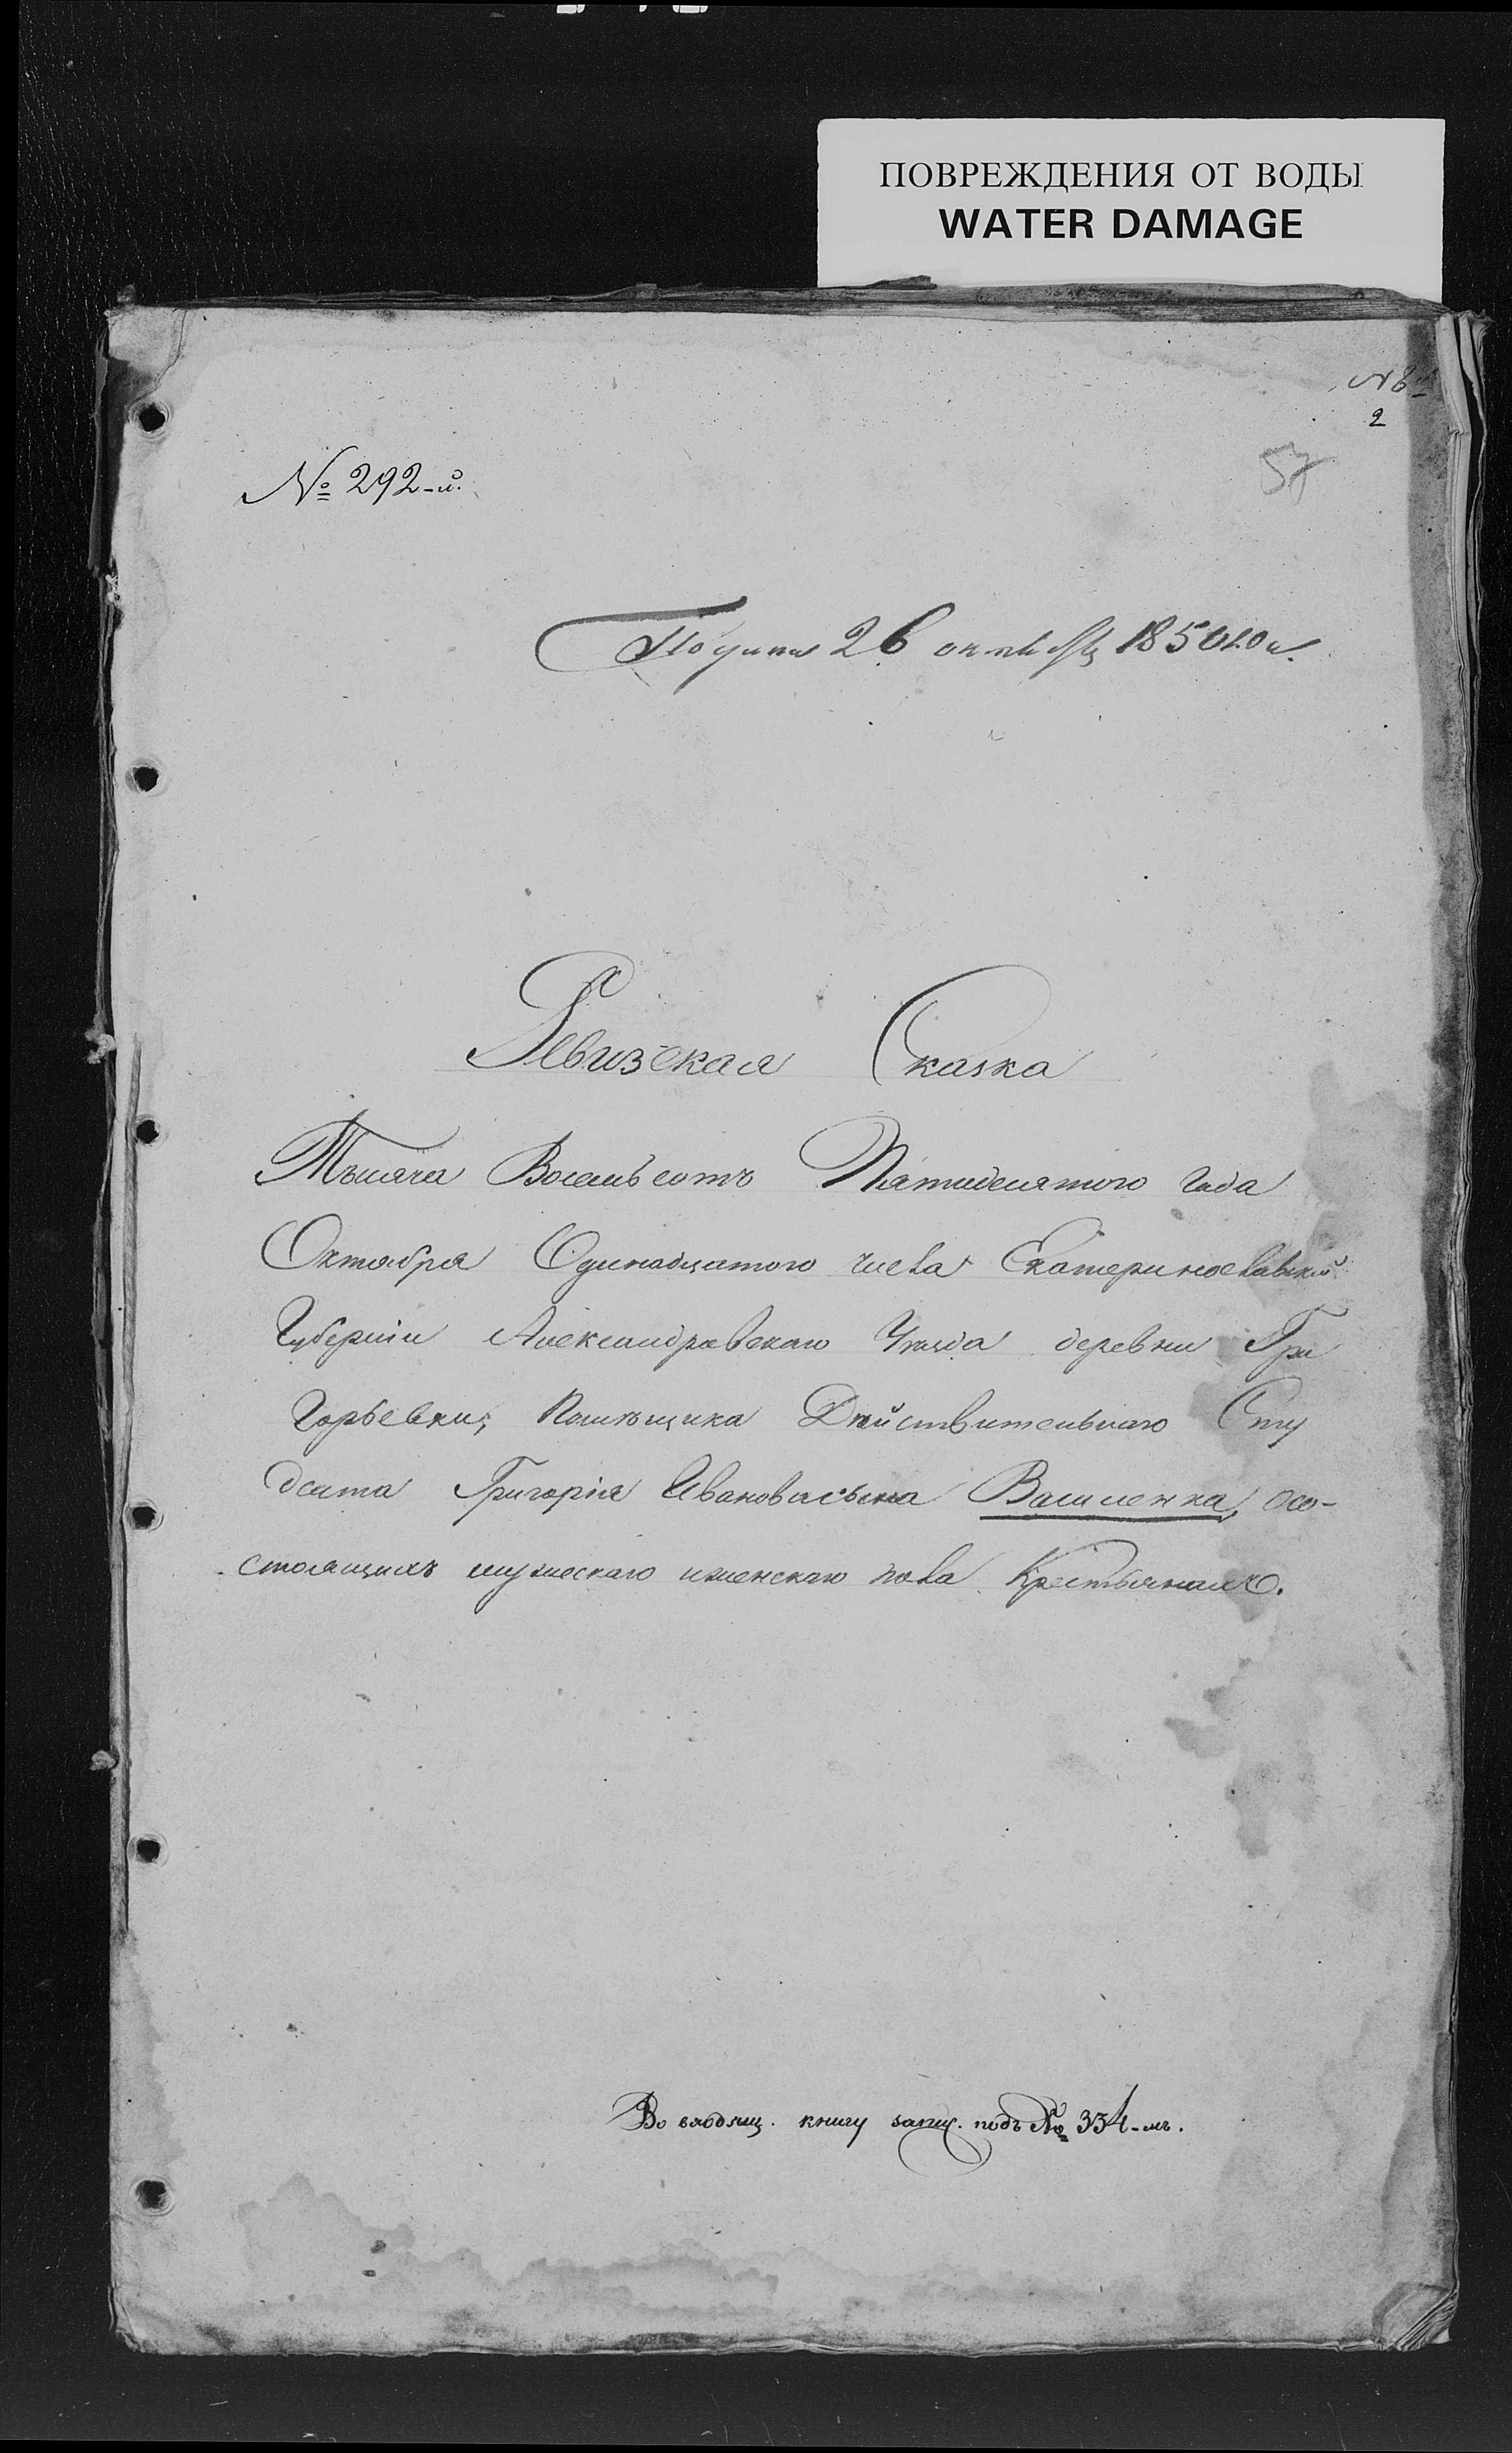 ПОВРЕЖДЕНИЯ ОТ ВОДЫ
WATER DAMAGE
2
№ 292-й.
57
26 октября 1850 года.
Ревизская Сказка
Тысяча Восемьсотъ Пятидесятого года
Октября Одинадцатого числа Екатеринославской
Губерніи Александровскаго Уѣзда деревни Гри
горьевки, Помѣщика Дѣйствительнаго Сту
дента Григорія Иванова сына Вашленка, осо-
стоящихъ мужескаго и женскаго пола Крестьянахъ.
Во входящ. книгу запис. подъ № 334-мъ.